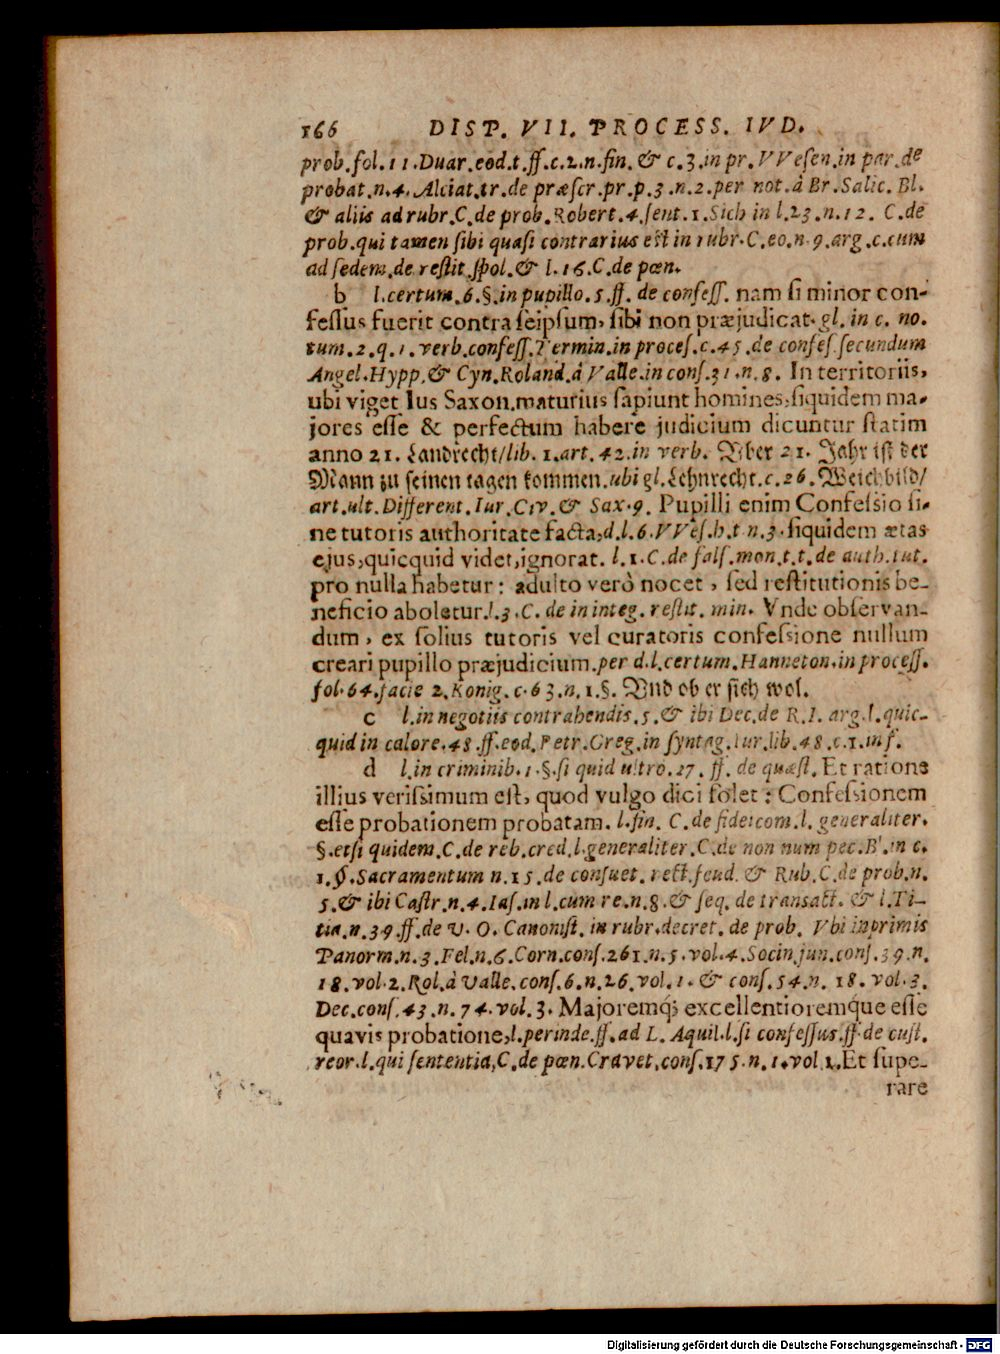 166 DISP. VII. PROCESS. IVD.
prob.fol.11.Duar.eod.t.ff.c.2.n.fin. & c.3.in pr.VVesen.in par.de
probat.n.4.Alciat.tr.de præscr.pr.p.3.n.2.per not.à Br.Salic.Bl.
& aliis ad rubr.C.de prob.Robert.4.sent.1.Sich in l.23.n.12. C.de
prob.qui tamen sibi quasi contrarius est in rubr.C.eo.n.9.arg.c.cum
ad sedem.de restit.spol.& l.16.C.de pœn.
b l.certum.6.§.in pupillo.5.ff. de confess. nam si minor con-
fessus fuerit contra seipsum, sibi non præjudicat.gl. in c. no.
tum.2.q.1.verb.confess.Termin.in proces.c.45.de confes.secundum
Angel.Hypp.& Cyn.Roland.à Valle.in cons.31.n.8. In territoriis,
ubi viget Ius Saxon.maturius sapiunt homines,siquidem ma-
jores esse & perfectum habere judicium dicuntur statim
anno 21. Landrecht/lib. 1.art. 42.in verb. Vber 21. Jahr ist der
Mann zu seinen tagen kommen.ubi gl.Lehnrecht.c.26.Weichbild/
art.ult.Different.Iur.Civ.& Sax.9. Pupilli enim Confessio si-
ne tutoris authoritate facta,d.l.6.VVes.h.t.n.3.siquidem ætas
ejus,quicquid videt,ignorat. l.1.C.de fals.mon.t.t.de auth.tut.
pro nulla habetur: adulto verò nocet, sed restitutionis be-
neficio aboletur.l.3.C. de in integ. restit. min. Vnde observan-
dum, ex solius tutoris vel curatoris confessione nullum
creari pupillo præjudicium.per d.l.certum.Hanneton.in process.
fol.64.facie 2.Konig.c.63.n.1.§. Vnd ob er sich wol.
c l.in negotiis contrahendis.5.& ibi Dec.de R.I. arg.l.quic-
quid in calore.48.ff.eod.Petr.Greg.in syntag.Iur.lib.48.c.1.in f.
d l.in criminib.1.§.si quid ultro.27. ff. de quæst. Et ratione
illius verissimum est, quod vulgo dici solet: Confessionem
esse probationem probatam. l.fin. C.de fideicom.l. generaliter.
§.etsi quidem.C.de reb.cred.l.generaliter.C.de non num pec.B'.in c.
1.§.Sacramentum n.15.de consuet. rect.feud. & Rub.C.de prob.n.
5.& ibi Castr.n.4.Ias.in l.cum re.n.8.& seq. de transact. & l.Ti-
tia.n.39.ff.de V. O. Canonist. in rubr.decret. de prob. Vbi inprimis
Panorm.n.3.Fel.n.6.Corn.cons.261.n.5.vol.4.Socin.jun.cons.39.n.
18.vol.2.Rol.à Valle.cons.6.n.26.vol.1.& cons.54.n. 18. vol.3.
Dec.cons.43.n.74.vol.3. Majoremq; excellentioremque esse
quavis probatione,l.perinde.ff.ad L. Aquil.l.si confessus.ff.de cust.
reor.l.qui sententia,C.de pœn.Cravet.cons.175.n.1.vol 1.Et supe-
rare
Digitalisierung gefördert durch die Deutsche Forschungsgemeinschaft - DFG